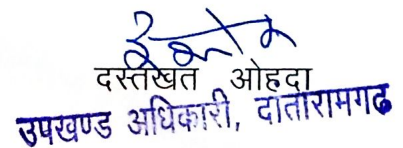 दस्तखत ओहदा
उपखण्ड अधिकारी, दातारामगढ